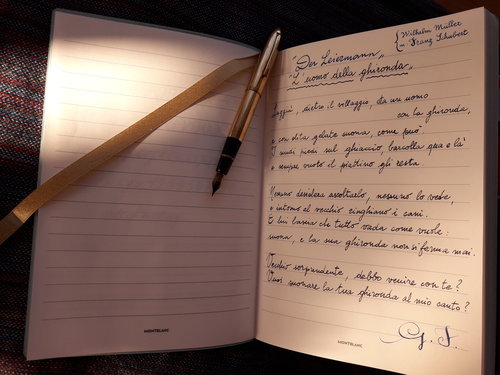 Wilhelm Müller
Franz Schubert
"Der Leiermann"
"L'uomo della ghironda"
Laggiù, dietro il villaggio, sta un uomo
con la ghironda,
e con dita gelate suona, come può.
I nudi piedi sul ghiaccio, barcolla qua e là
e sempre vuoto il piattino gli resta.
Nessuno desidera ascoltarlo, nessuno lo vede,
e intorno al vecchio ringhiano i cani.
E lui lascia che tutto vada come vuole.
suona, e la sua ghironda non si ferma mai.
Vecchio sorprendente, debbo venire con te?
Vuoi suonare la tua ghironda al mio canto?
MONTBLANC
MONTBLANC